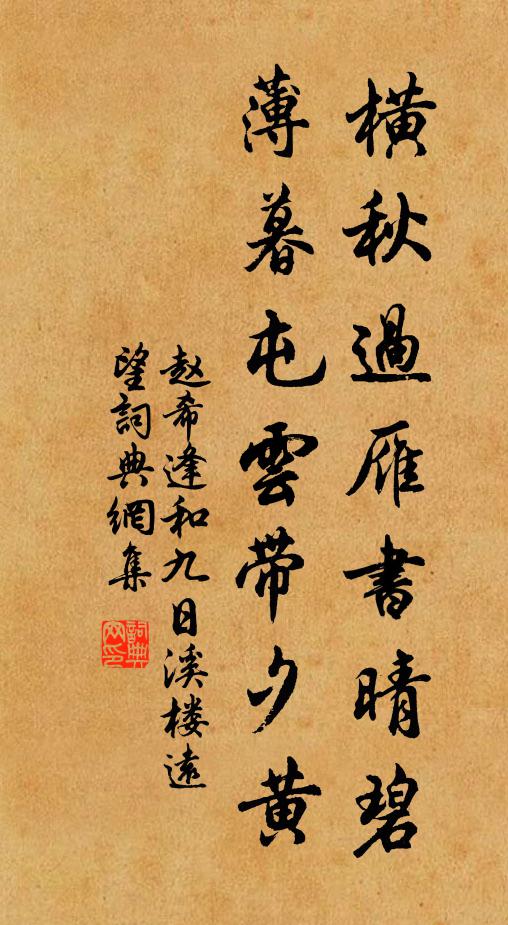 橫秋過雁書晴碧
薄暮屯雲帶夕黃
赵希逢和九日溪楼遠
望詞典網集
詞典
网印